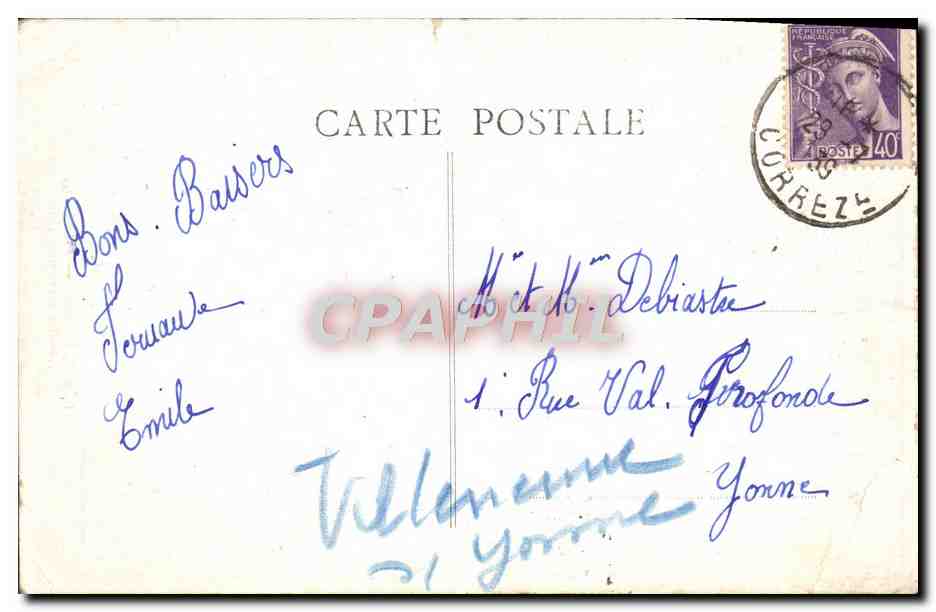 RÉPUBLIQUE
FRANÇAISE
POSTES
40c
CORREZE
CARTE POSTALE
Bons. Baisers
Fernande
Emile
Mr et Mme Debiastre
1. Rue Val. Profonde
Yonne
Villeneuve
s/ Yonne
CPAPHIL